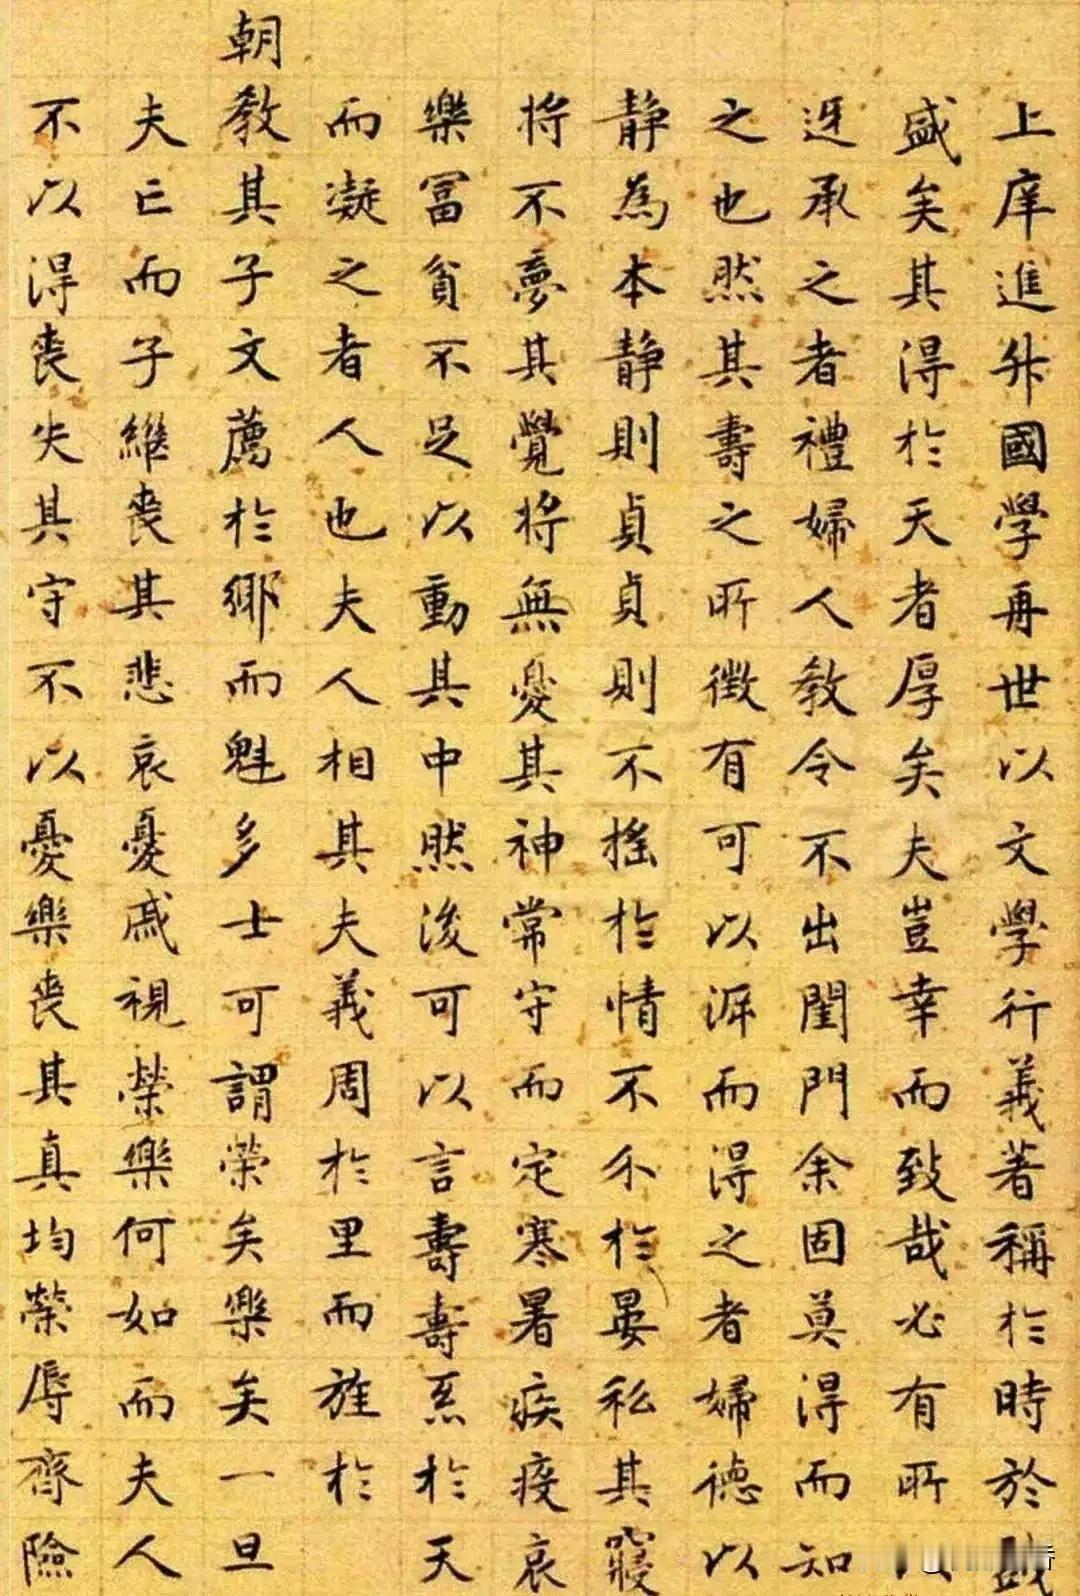 上庠進升國學再世以文學行義著稱於時於戲
盛矣其得於天者厚矣夫豈幸而致哉必有所以
迓承之者禮婦人教令不出閨門余固莫得而知
之也然其壽之所徵有可以泝而得之者婦德以
靜為本靜則貞貞則不搖於情不尒於晏私其寢
將不夢其覺將無憂其神常守而定寒暑疾疫哀
樂冨貧不足以動其中然後可以言壽壽系於天
而凝之者人也夫人相其夫義周於里而旌於
朝教其子文薦於鄉而魁多士可謂榮矣樂矣一旦
夫亡而子繼喪其悲哀憂戚視榮樂何如而夫人
不以得喪失其守不以憂樂喪其真均榮辱齊險